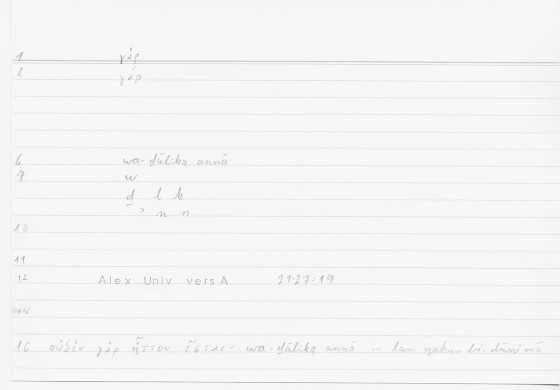 1 γάρ
2 γάρ
6 wa-ḏālika annā
7 w
ḏ l k
ʾ n n
10
11
12 Alex Univ vers A 21.27-19
16 οὐδὲν γὰρ ἧττον ἔσται wa-ḏālika annā ... lam yakun bi-dūni mā